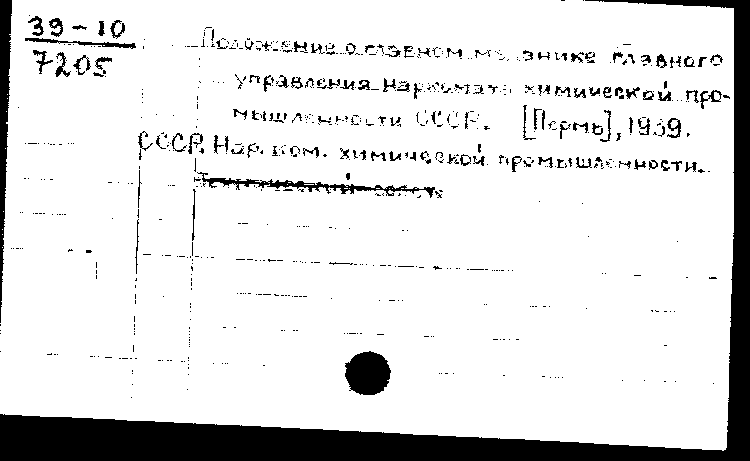 39-10
7205
Положение о главном механике главного
управления Наркомата химической про-
мышленности СССР. [Пермь], 1939.
СССР. Нар. ком. химической промышленности.